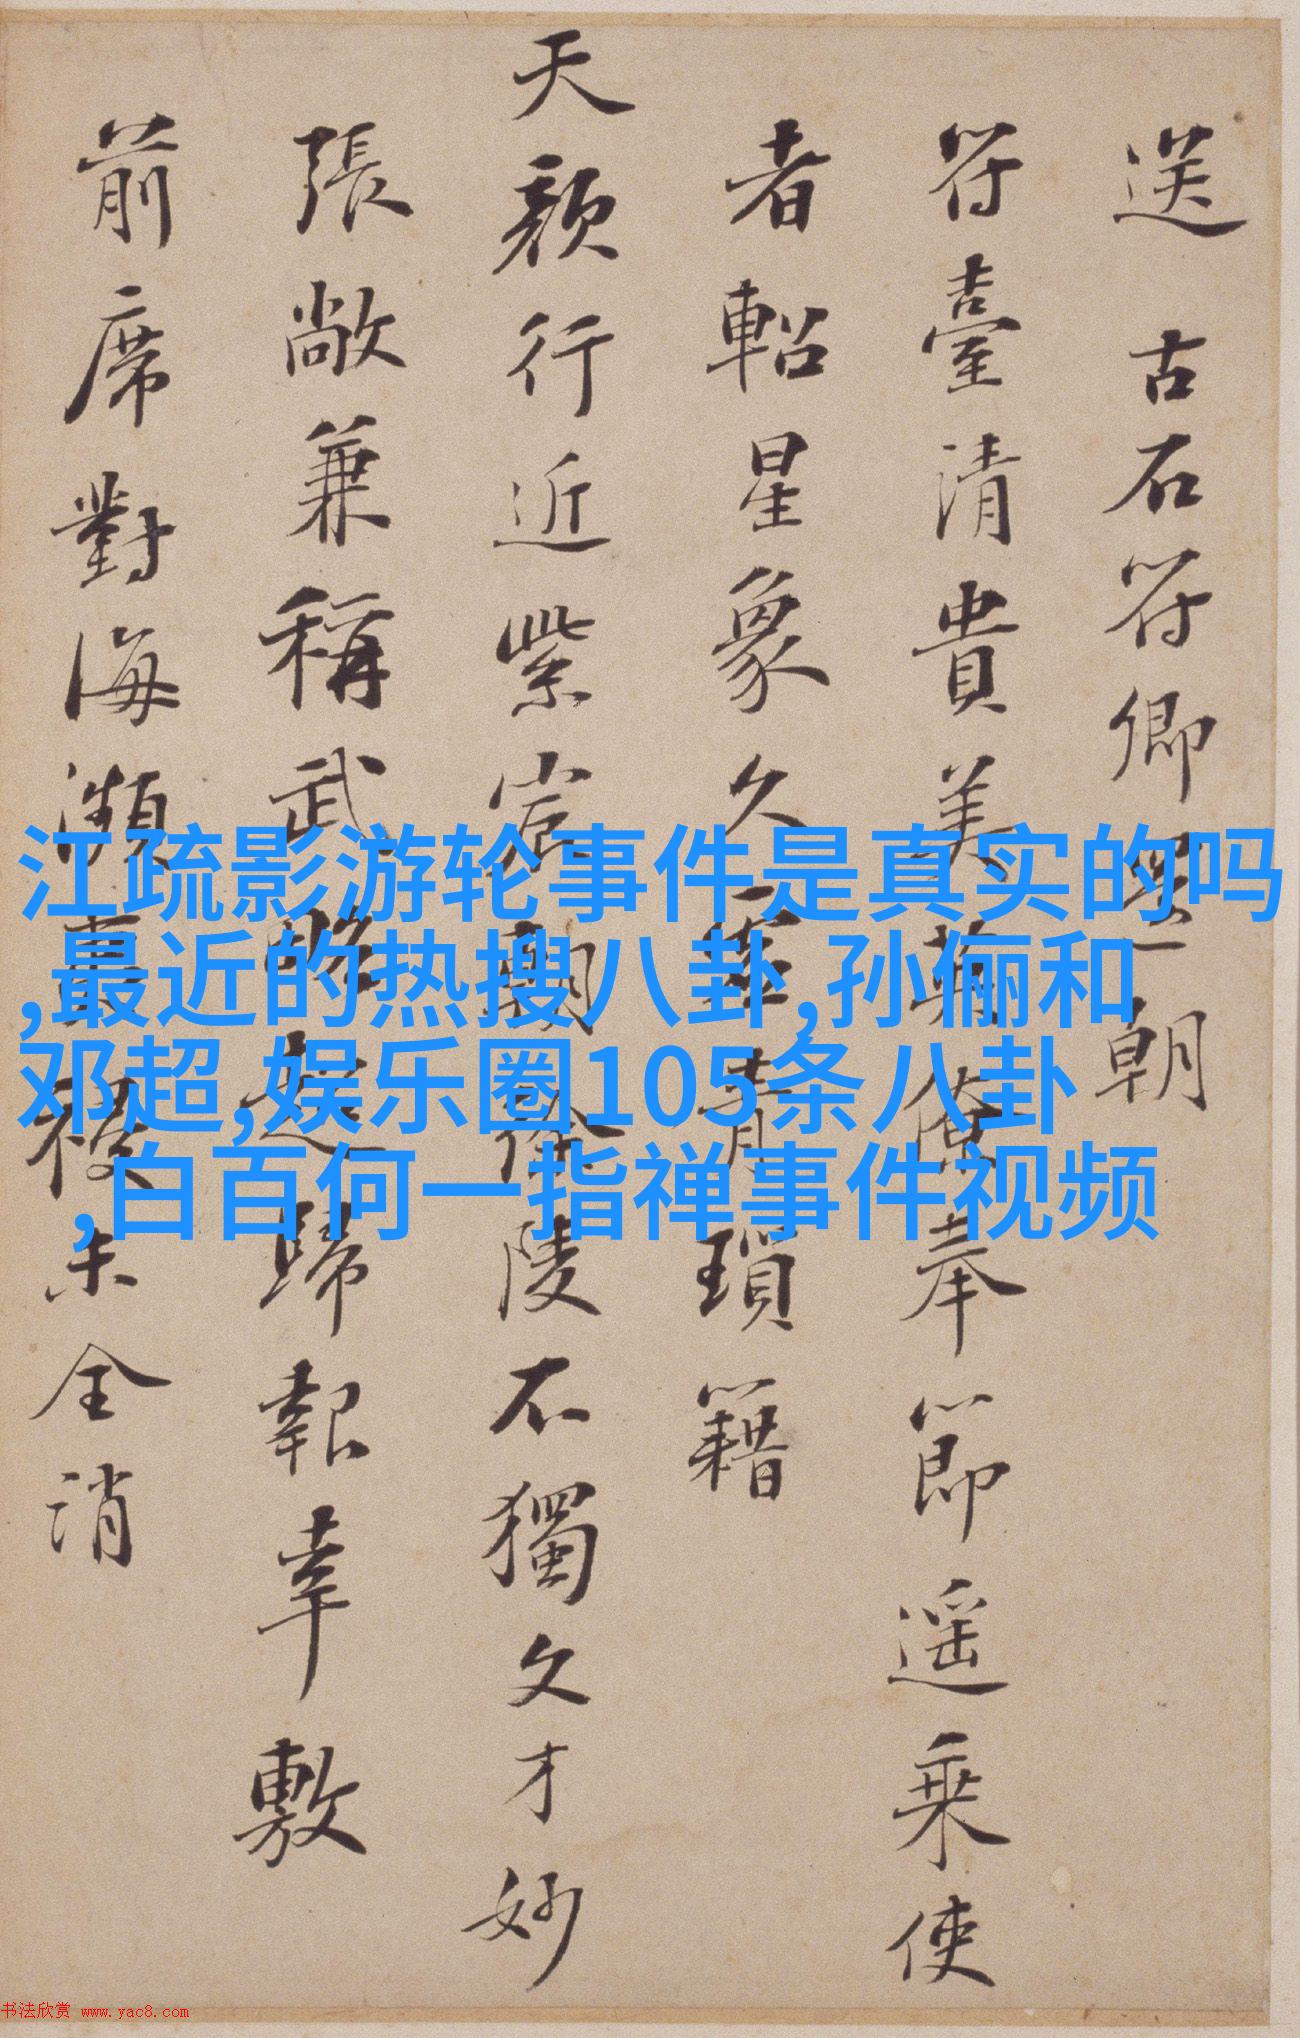 送 古石符卿還朝
符臺清貴美英僚奉節遥乘使
者軺星象久塵青瑣籍
天顏行近紫宸朝徐陵不獨文才妙
張敞兼稱武略超歸報幸敷
前席對海瀕裏祲未全消
江疏影游轮事件是真实的吗
,最近的热搜八卦,孙俪和
邓超,娱乐圈105条八卦
,白百何一指禅事件视频
书法欣赏 www.yac8.com